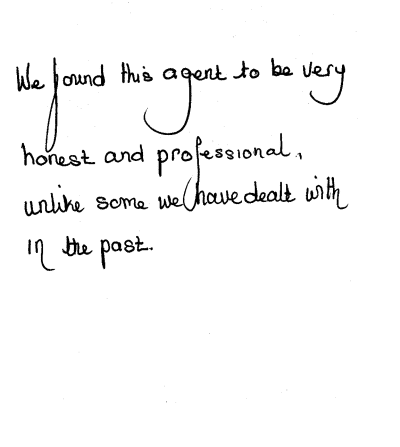 We found this agent to be very
honest and professional,
unlike some we have dealt with
in the past.